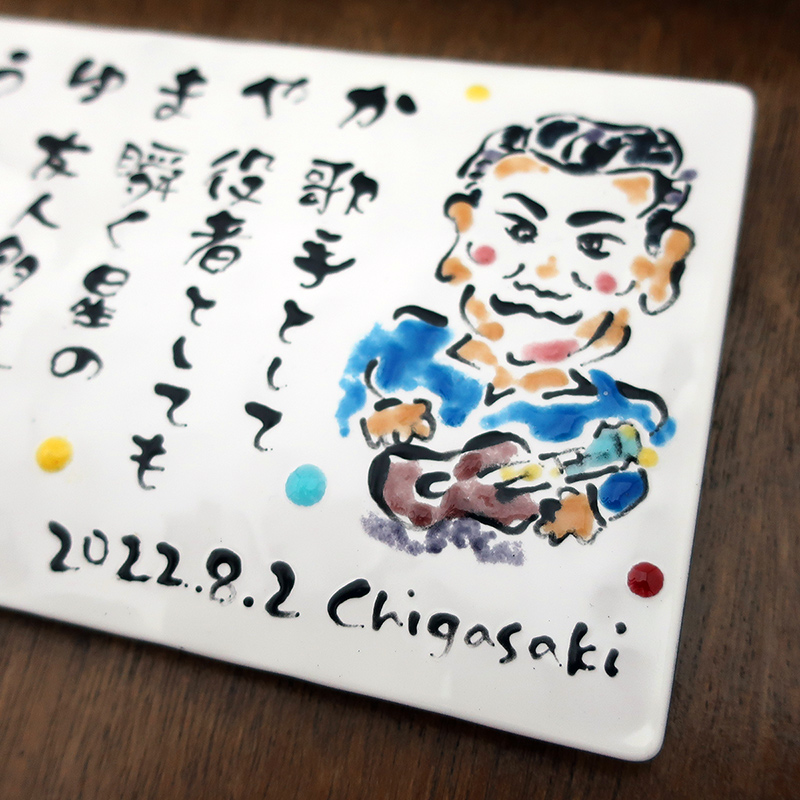 か 歌手として
や 役者としても
ま 瞬く星の
ゆ 友人
う
2022.8.2 Chigasaki